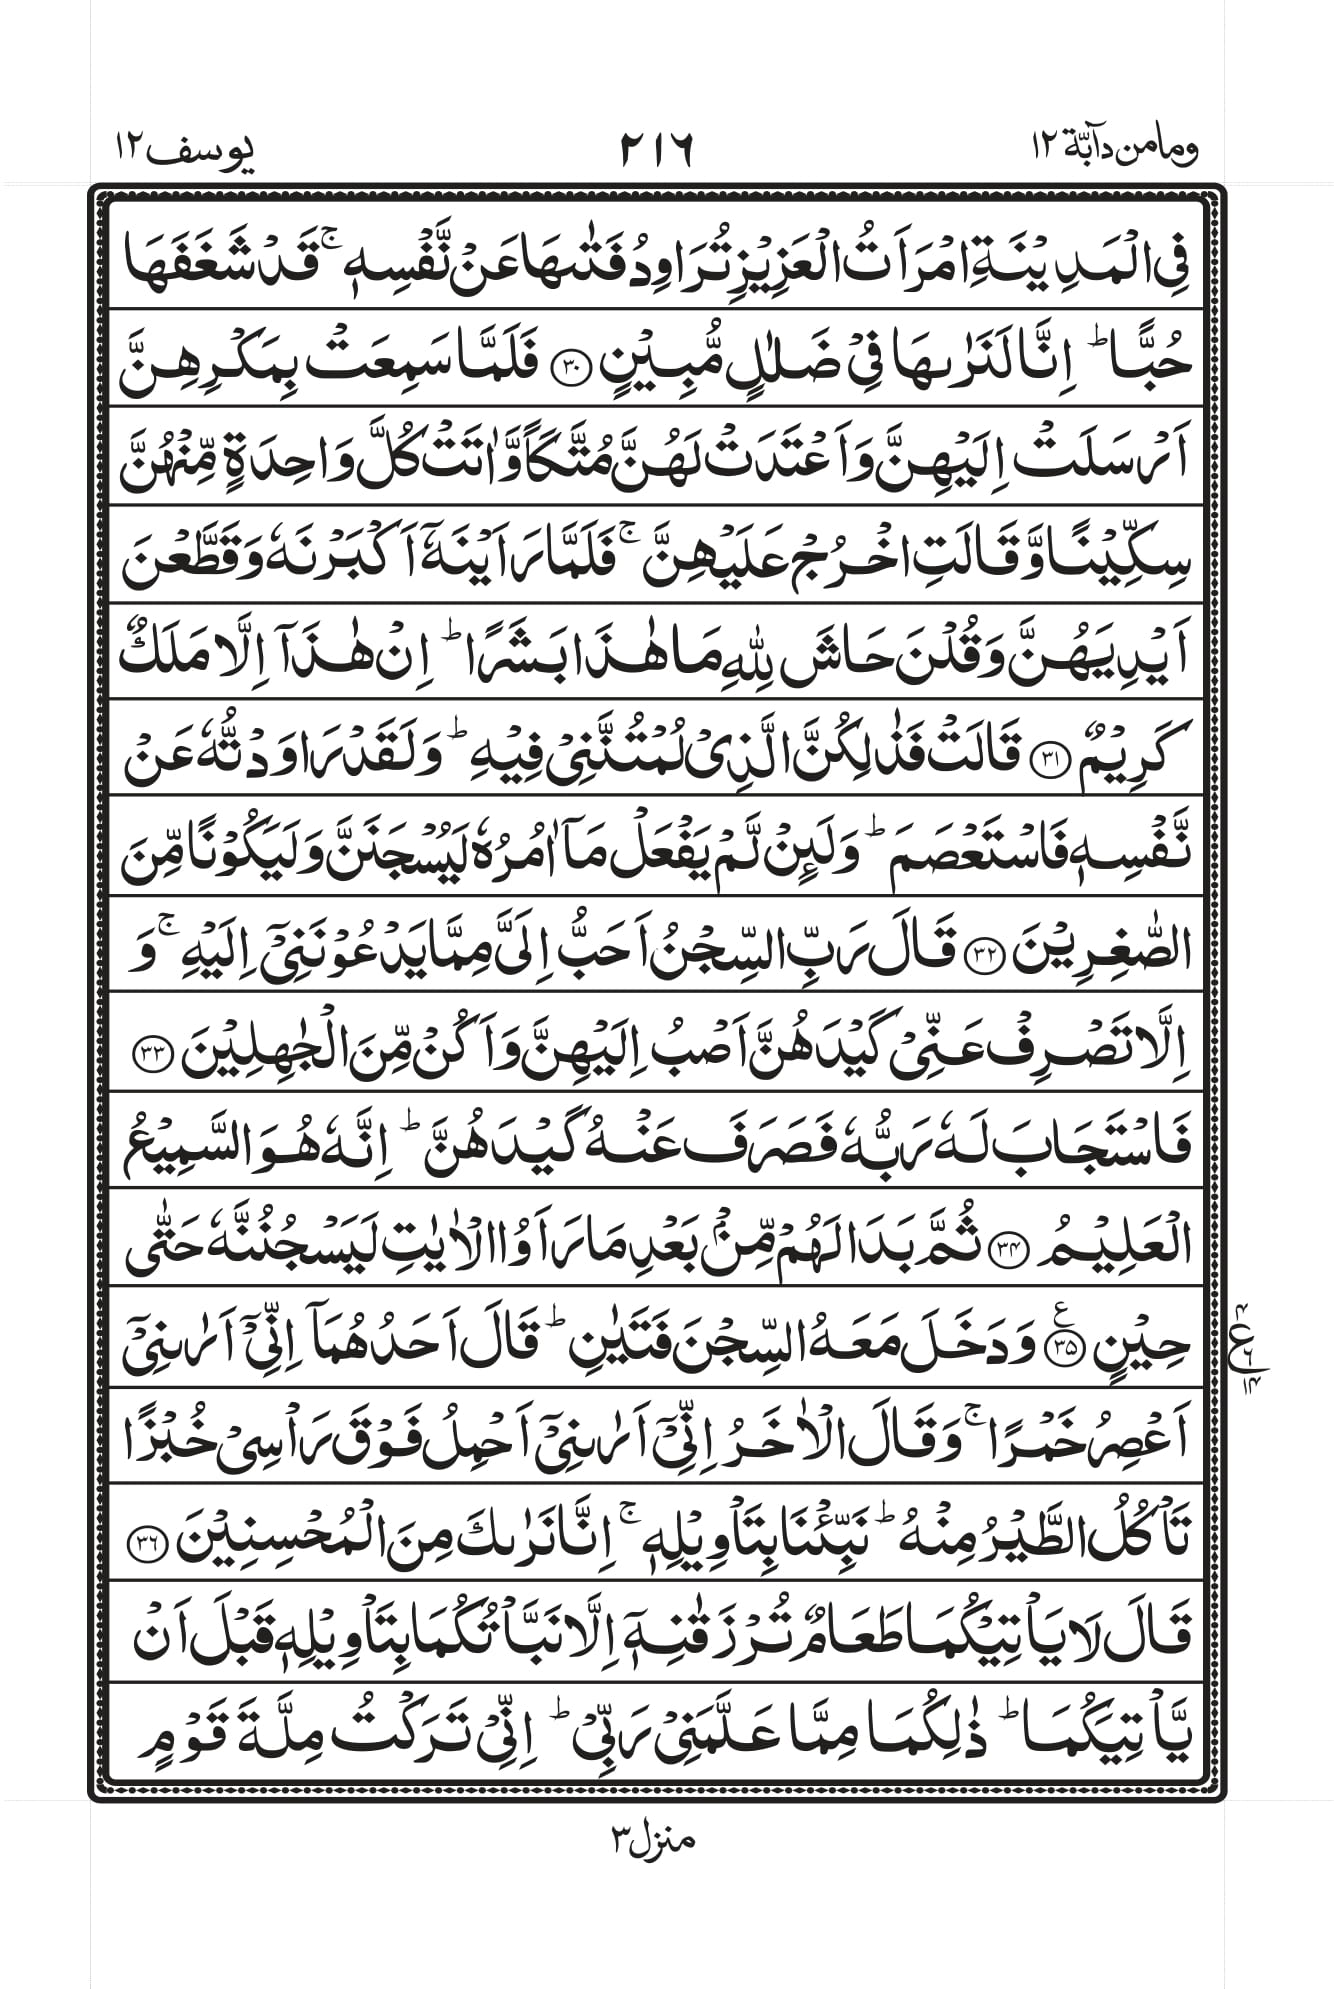 ومامن دآبّة ١٢
٢١٦
يوسف ١٢
فِى الْمَدِيْنَةِ امْرَاَتُ الْعَزِيْزِ تُرَاوِدُ فَتٰىهَا عَنْ نَّفْسِهٖ ۚ قَدْ شَغَفَهَا
حُبًّا ؕ اِنَّا لَنَرٰىهَا فِىْ ضَلٰلٍ مُّبِيْنٍ ﴿۳۰﴾ فَلَمَّا سَمِعَتْ بِمَكْرِهِنَّ
اَرْسَلَتْ اِلَيْهِنَّ وَاَعْتَدَتْ لَهُنَّ مُتَّكَاً وَّاٰتَتْ كُلَّ وَاحِدَةٍ مِّنْهُنَّ
سِكِّيْنًا وَّقَالَتِ اخْرُجْ عَلَيْهِنَّ ۚ فَلَمَّا رَاَيْنَهٗۤ اَكْبَرْنَهٗ وَقَطَّعْنَ
اَيْدِيَهُنَّ وَقُلْنَ حَاشَ لِلّٰهِ مَا هٰذَا بَشَرًا ؕ اِنْ هٰذَاۤ اِلَّا مَلَكٌ
كَرِيْمٌ ﴿۳۱﴾ قَالَتْ فَذٰلِكُنَّ الَّذِىْ لُمْتُنَّنِىْ فِيْهِ ؕ وَلَقَدْ رَاوَدْتُّهٗ عَنْ
نَّفْسِهٖ فَاسْتَعْصَمَ ؕ وَلَئِنْ لَّمْ يَفْعَلْ مَاۤ اٰمُرُهٗ لَيُسْجَنَنَّ وَلَيَكُوْنًا مِّنَ
الصّٰغِرِيْنَ ﴿۳۲﴾ قَالَ رَبِّ السِّجْنُ اَحَبُّ اِلَىَّ مِمَّا يَدْعُوْنَنِىْۤ اِلَيْهِ ۚ وَ
اِلَّا تَصْرِفْ عَنِّىْ كَيْدَهُنَّ اَصْبُ اِلَيْهِنَّ وَاَكُنْ مِّنَ الْجٰهِلِيْنَ ﴿۳۳﴾
فَاسْتَجَابَ لَهٗ رَبُّهٗ فَصَرَفَ عَنْهُ كَيْدَهُنَّ ؕ اِنَّهٗ هُوَ السَّمِيْعُ
الْعَلِيْمُ ﴿۳۴﴾ ثُمَّ بَدَا لَهُمْ مِّنْۢ بَعْدِ مَا رَاَوُا الْاٰيٰتِ لَيَسْجُنُنَّهٗ حَتّٰى
حِيْنٍ ﴿۳۵﴾ ع وَدَخَلَ مَعَهُ السِّجْنَ فَتَيٰنِ ؕ قَالَ اَحَدُهُمَاۤ اِنِّىْۤ اَرٰىنِىْۤ
۴ ع ٦ ۱۴
اَعْصِرُ خَمْرًا ۚ وَقَالَ الْاٰخَرُ اِنِّىْۤ اَرٰىنِىْۤ اَحْمِلُ فَوْقَ رَاْسِىْ خُبْزًا
تَاْكُلُ الطَّيْرُ مِنْهُ ؕ نَبِّئْنَا بِتَاْوِيْلِهٖ ۚ اِنَّا نَرٰىكَ مِنَ الْمُحْسِنِيْنَ ﴿۳۶﴾
قَالَ لَا يَاْتِيْكُمَا طَعَامٌ تُرْزَقٰنِهٖۤ اِلَّا نَبَّاْتُكُمَا بِتَاْوِيْلِهٖ قَبْلَ اَنْ
يَّاْتِيَكُمَا ؕ ذٰلِكُمَا مِمَّا عَلَّمَنِىْ رَبِّىْ ؕ اِنِّىْ تَرَكْتُ مِلَّةَ قَوْمٍ
منزل ٣